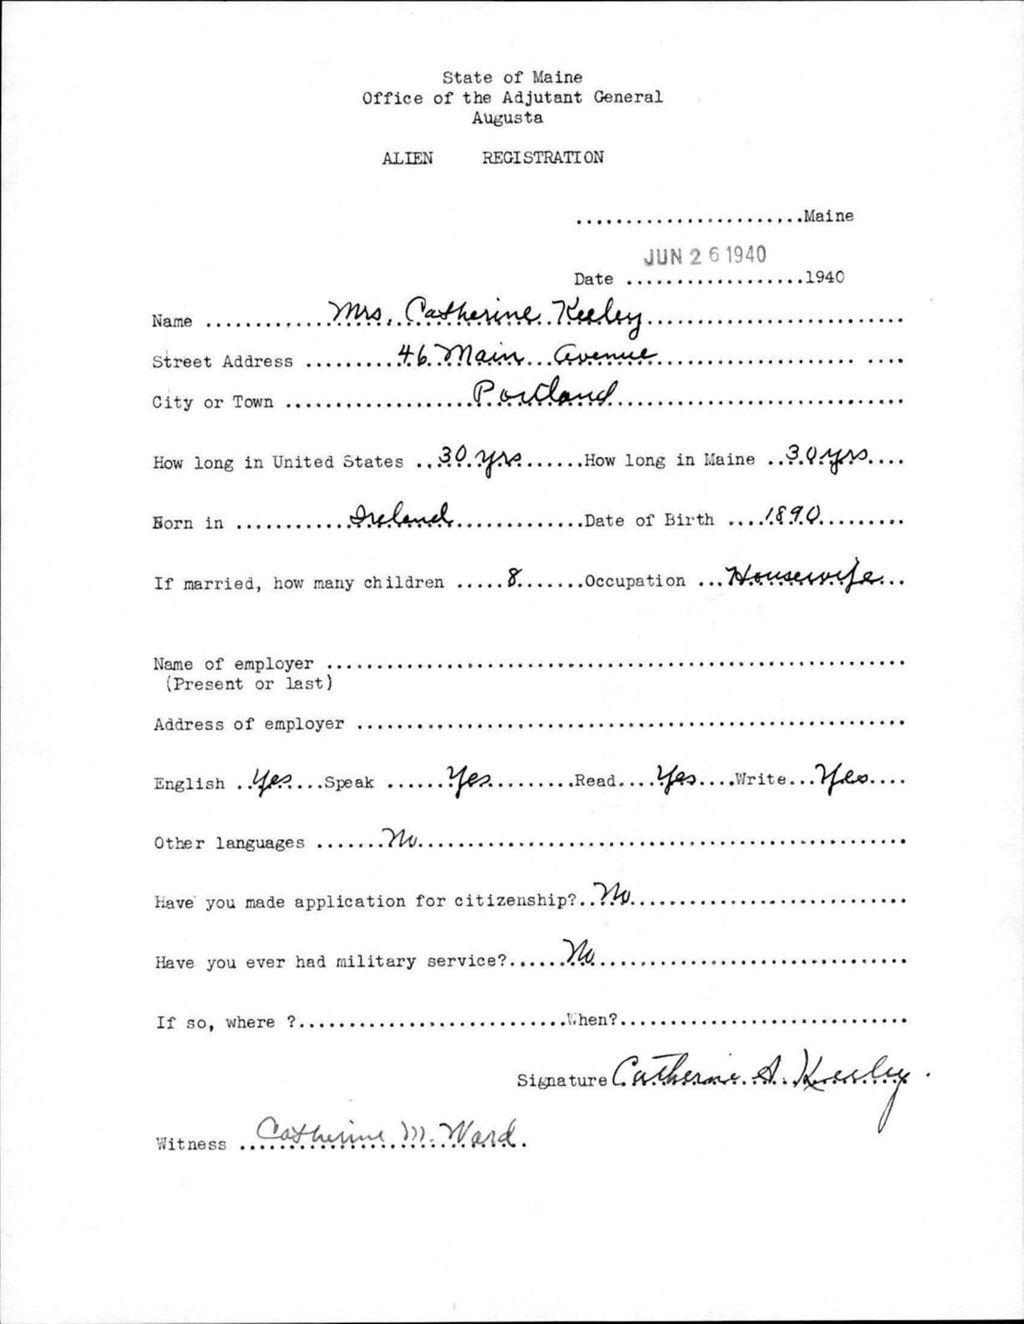 State of Maine
Office of the Adjutant General
Augusta
ALIEN REGISTRATION
.......................Maine
JUN 26 1940
Date ..................1940
Name ............Mrs. Catherine Keeley..........................
Street Address .........46 Main Avenue......................... ....
City or Town ...................Portland.............................
How long in United States ..30 yrs......How long in Maine ..30 yrs....
Born in ............Ireland.............Date of Birth ....1890.........
If married, how many children .....8.......Occupation ...Housewife...
Name of employer ..........................................................
(Present or last)
Address of employer .......................................................
English ..Yes....Speak ......Yes.........Read....Yes....Write...Yes....
Other languages .......No.................................................
Have you made application for citizenship?..No............................
Have you ever had military service?......No...............................
If so, where ?...........................When?.............................
Signature Catherine A. Keeley.
Witness ..Catherine M. Ward.